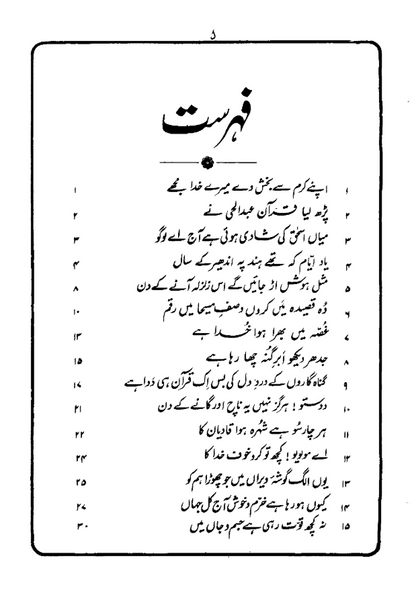 د
فہرست
۱ اپنے کرم سے بخش دے میرے خدا مجھے ۱
۲ پڑھ لیا قرآن عبدالحی نے ۲
۳ میاں اسحٰق کی شادی ہوئی ہے آج اے لوگو ۳
۴ یاد ایّام کہ تھے ہند پہ اندھیر کے سال ۴
۵ مثلِ ہوش اڑ جائیں گے اس زلزلہ آنے کے دن ۸
۶ وُہ قصیدہ میَں کروں وصفِ مسیحا میں رقم ۱۰
۷ غصّہ میں بھرا ہوا خُدا ہے ۱۳
۸ جدھر دیکھو ابرِ گنہ چھا رہا ہے ۱۵
۹ گناہ گاروں کے دردِ دل کی بس اِک قرآن ہی دَوا ہے ۱۷
۱۰ دوستو! ہرگز نہیں یہ ناچ اور گانے کے دن ۲۱
۱۱ ہر چار سُو ہے شہُرہ ہوا قادیان کا ۲۲
۱۲ اے مولویو! کچھ تو کرو خوف خُدا کا ۲۴
۱۳ یوں الگ گوشۂ ویراں میں جو چھوڑا ہم کو ۲۵
۱۴ کیوں ہو رہا ہے خرّم و خوش آج کل جہاں ۲۷
۱۵ نہ کچھ قوّت رہی ہے جسم و جاں میں ۳۰